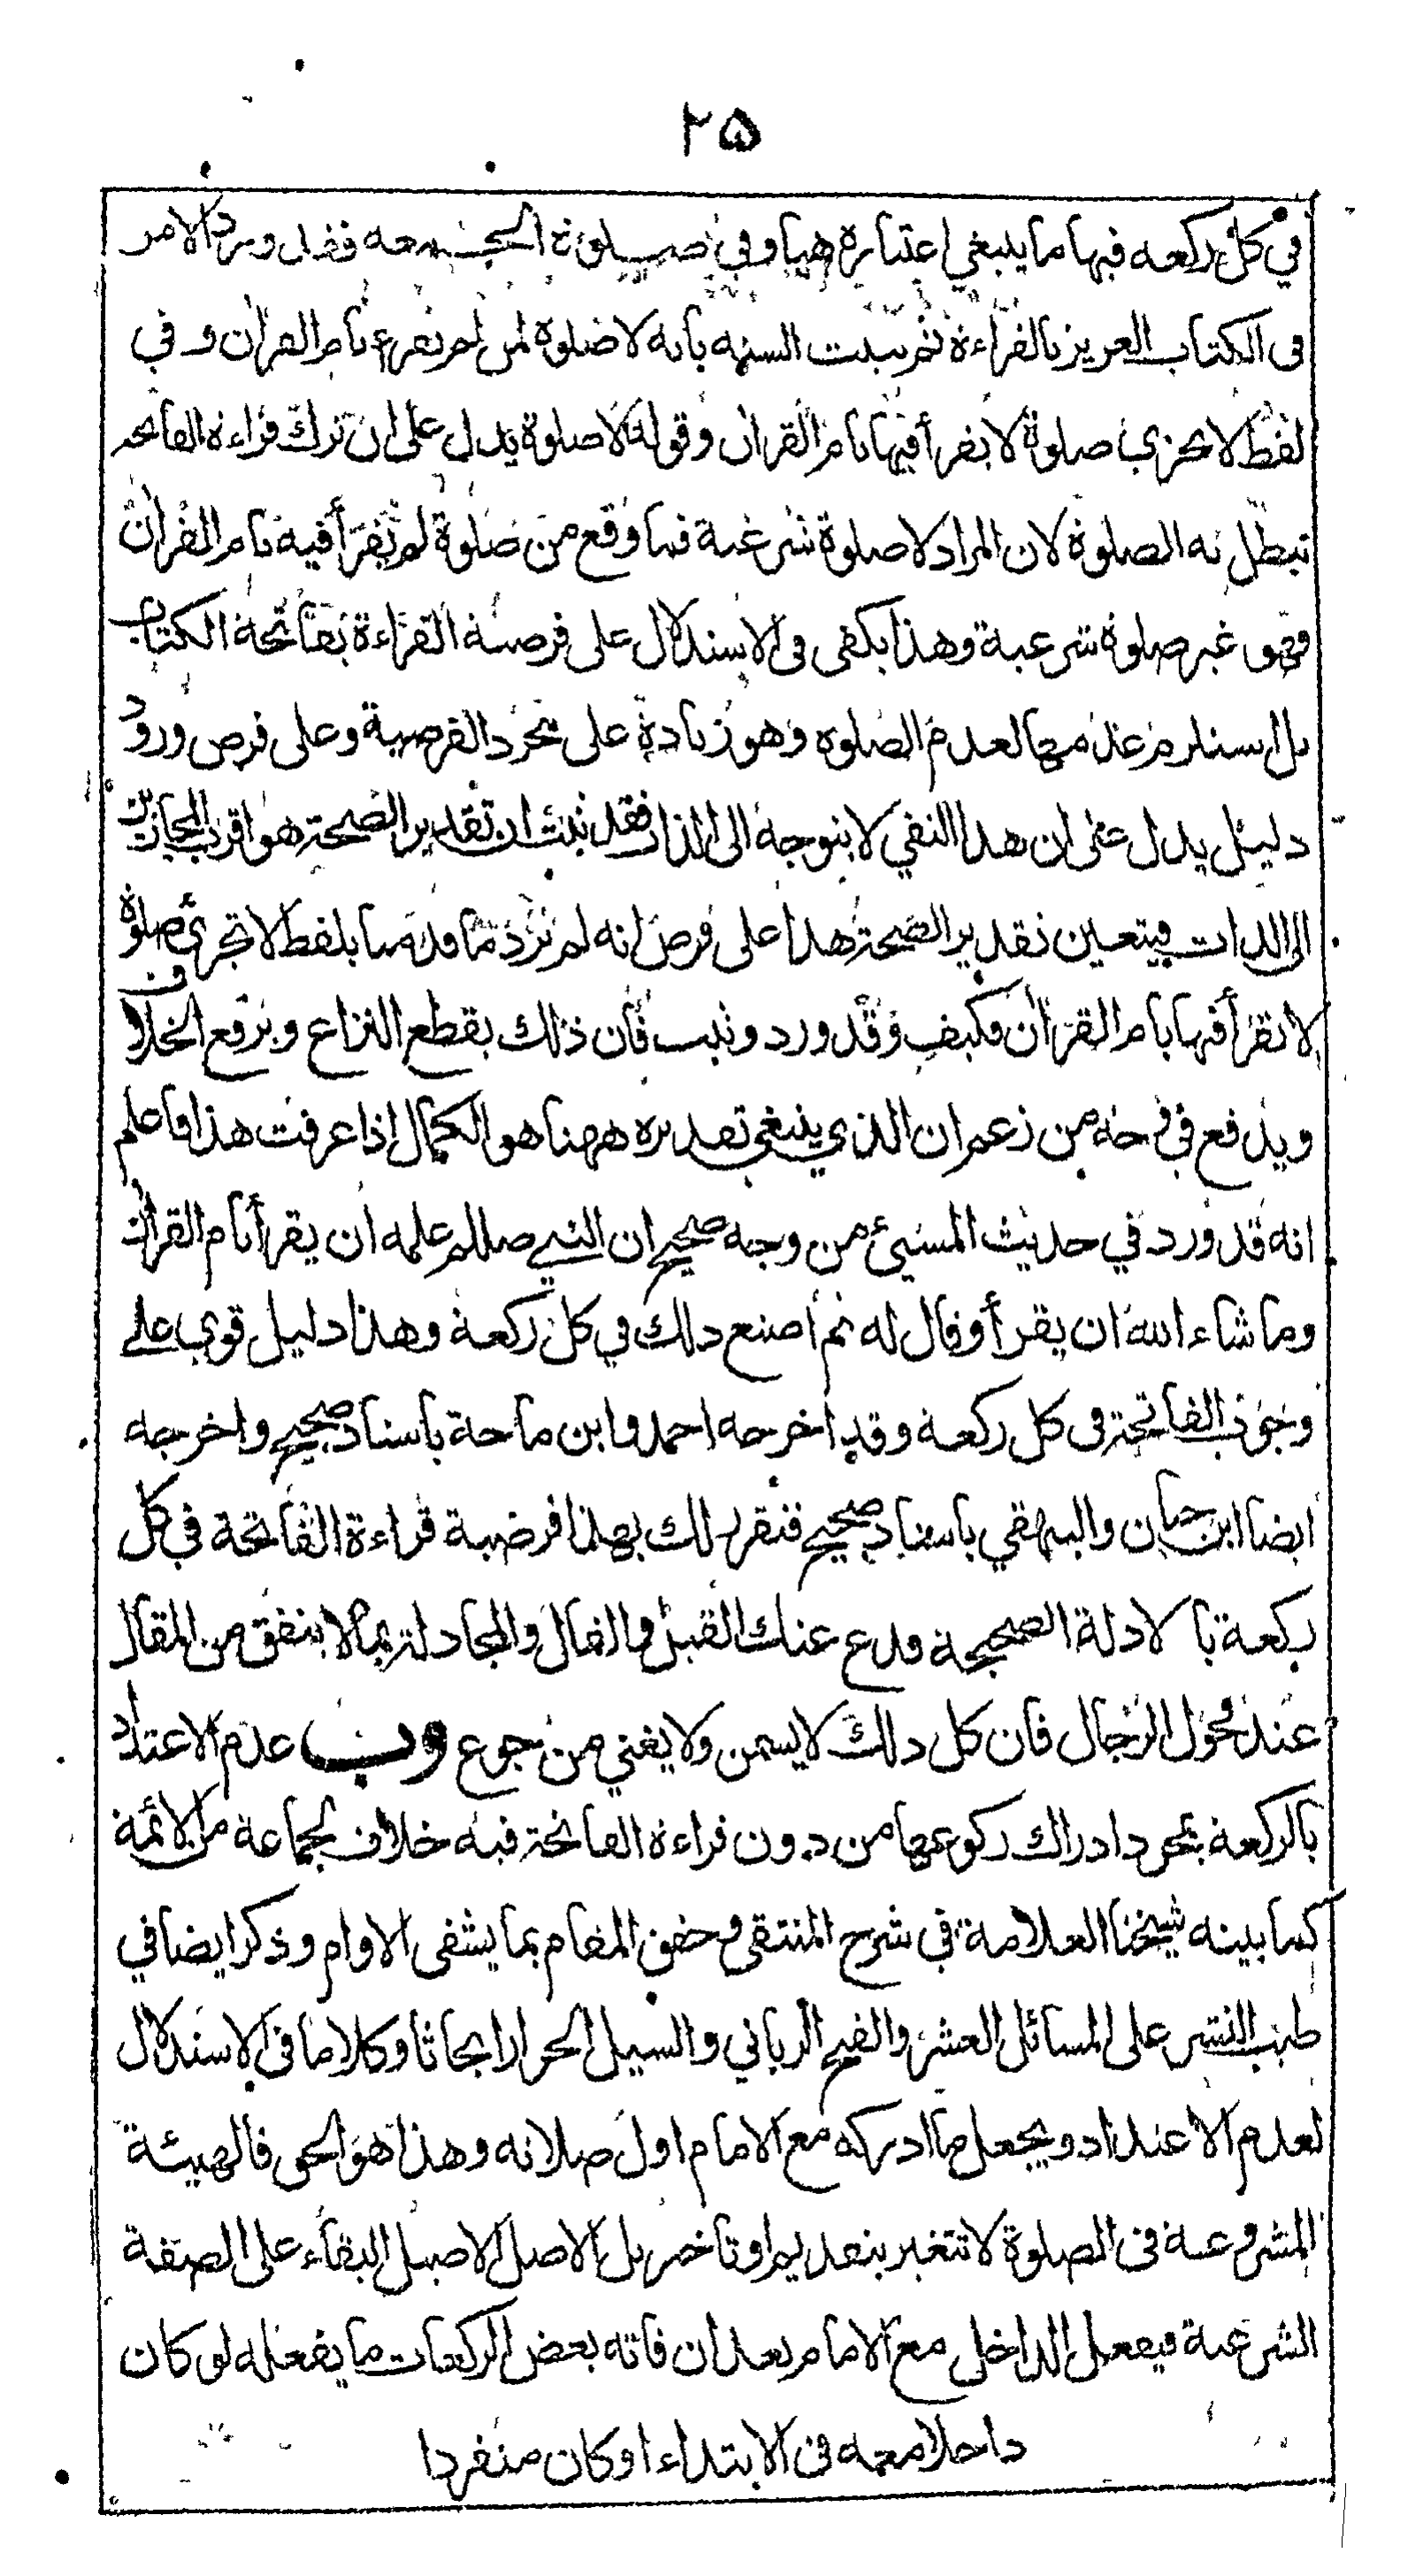 ۲۵
في كل ركعة فيها ما ينبغي اعتباره هيا وفي صلوة الجمعة فقد ورد الامر
في الكتاب العزيز بالقراءة ثم بينت السنة بانه لا صلوة لمن لم يقرء بام القران وفي
لفظ لا تجزي صلوة لا يقرأ فيها بام القران وقوله لا صلوة يدل على ان ترك قراءة الفاتحة
تبطل به الصلوة لان المراد لا صلوة شرعية فما وقع من صلوة لم يقرأ فيه بام القران
فهو غير صلوة شرعية وهذا يكفى في الاستدلال على فرضية القراءة بفاتحة الكتاب
بل يستلزم عدمها لعدم الصلوة وهو زيادة على مجرد الفرضية وعلى فرض ورود
دليل يدل على ان هذا النفي لا يتوجه الى الذات فقد ثبت ان تقدير الصحة هو اقرب المجازين
الى الذات فيتعين تقدير الصحة هذا على فرض انه لم يرد ما قدمنا بلفظ لا تجزئ صلوة
لا تقرأ فيها بام القران فكيف وقد ورد وثبت فان ذلك يقطع النزاع ويرفع الخلاف
ويدفع في وجه من زعم ان الذي ينبغي تقديره ههنا هو الكمال اذا عرفت هذا فاعلم
انه قد ورد في حديث المسيئ من وجه صحيح ان النبي صللم علمه ان يقرأ بام القران
وما شاء الله ان يقرأ وقال له ثم اصنع ذلك في كل ركعة وهذا دليل قوي على
وجوب الفاتحة في كل ركعة وقد اخرجه احمد وابن ماجة باسناد صحيح واخرجه
ايضا ابن حبان والبيهقي باسناد صحيح فتقرر لك بهذا فرضية قراءة الفاتحة في كل
ركعة بالادلة الصحيحة فدع عنك القيل والقال والمجادلة بما لا ينفق من المقال
عند فحول الرجال فان كل ذلك لا يسمن ولا يغني من جوع وب عدم الاعتداد
بالركعة بمجرد ادراك ركوعها من دون قراءة الفاتحة فيه خلاف لجماعة من الائمة
كما بينه شيخنا العلامة في شرح المنتقى وحقق المقام بما يشفى الاوام وذكر ايضا في
طيب النشر على المسائل العشر والفتح الرباني والسيل الجرار ابحاثا وكلاما في الاستدلال
لعدم الاعتداد ويجعل ما ادركه مع الامام اول صلاته وهذا هو الحق فالهيئة
المشروعة في الصلوة لا تتغير بتقديم او تاخير بل الاصل الاصيل البقاء على الصفة
الشرعية فيفعل الداخل مع الامام بعد ان فاته بعض الركعات ما يفعله لو كان
داخلا معه في الابتداء او كان منفردا